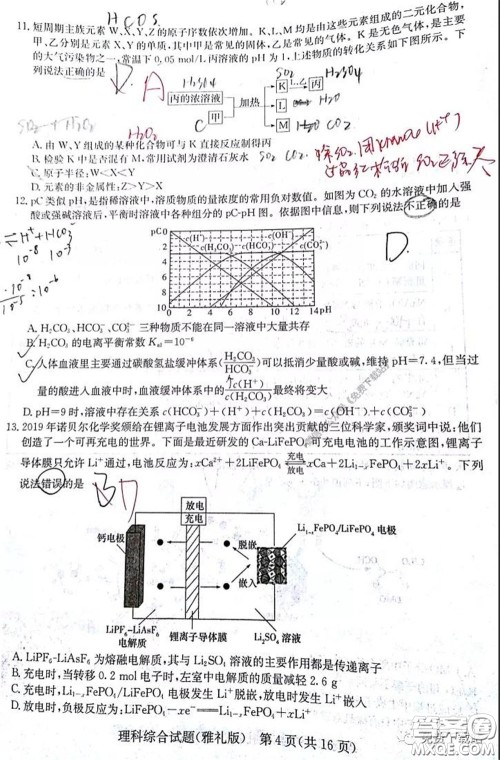 HCOS
11. 短周期主族元素 W、X、Y、Z 的原子序数依次增加。K、L、M 均是由这些元素组成的二元化合物,
甲、乙分别是元素 X、Y 的单质,其中甲是常见的固体,乙是常见的气体。K 是无色气体,是主要
的大气污染物之一,常温下 0.05 mol/L 丙溶液的 pH 为 1,上述物质的转化关系如图所示。下
列说法正确的是
D. A
H2SO4
丙的浓溶液
C 甲
加热
SO2
K L、乙 丙 H2SO4
L H2O
M CO2
SO2 + H2O2
H2O2
A. 由 W、Y 组成的某种化合物可与 K 直接反应制得丙
B. 检验 K 中是否混有 M,常用试剂为澄清石灰水 SO2 CO2
C. 原子半径:W<X<Y
D. 元素的非金属性:Z>Y>X
12. pC 类似 pH,是指稀溶液中,溶质物质的量浓度的常用负对数值。如图为 CO2 的水溶液中加入强
酸或强碱溶液后,平衡时溶液中各种组分的 pC-pH 图。依据图中信息,则下列说法不正确的是
D.
H+ + HCO3
10-8 10-3
pC 0
2
4
6
8
10
c(H+)
c(H2CO3)
c(HCO3-)
c(OH-)
c(CO32-)
0 2 4 6 8 10 12 14 pH
A. H2CO3、HCO3-、CO32- 三种物质不能在同一溶液中大量共存
B. H2CO3 的电离平衡常数 Ka1=10-6
C. 人体血液里主要通过碳酸氢盐缓冲体系(H2CO3/HCO3-)可以抵消少量酸或碱,维持 pH=7.4,但当过
量的酸进入血液中时,血液缓冲体系中的 c(H+)/c(H2CO3) 最终将变大
D. pH=9 时,溶液中存在关系 c(HCO3-)+c(H+)+c(H2CO3)=c(OH-)+c(CO32-)
13. 2019 年诺贝尔化学奖颁给在锂离子电池发展方面作出突出贡献的三位科学家,颁奖词中说:他们
创造了一个可再充电的世界。下面是最近研发的 Ca-LiFePO4 可充电电池的工作示意图,锂离子
导体膜只允许 Li+ 通过,电池反应为:xCa2++2LiFePO4 充电⇌放电 xCa+2Li1-xFePO4+2xLi+。下列
说法错误的是
B D
放电
充电
钙电极
脱嵌
嵌入
Li1-xFePO4/LiFePO4 电极
LiPF6-LiAsF6
电解质
锂离子导体膜
Li2SO4 溶液
A. LiPF6-LiAsF6 为熔融电解质,其与 Li2SO4 溶液的主要作用都是传递离子
B. 充电时,当转移 0.2 mol 电子时,左室中电解质的质量减轻 2.6 g
C. 充电时,Li1-xFePO4/LiFePO4 电极发生 Li+ 脱嵌,放电时发生 Li+ 嵌入
D. 放电时,负极反应为:LiFePO4-xe-═Li1-xFePO4+xLi+
理科综合试题(雅礼版) 第 4 页(共 16 页)